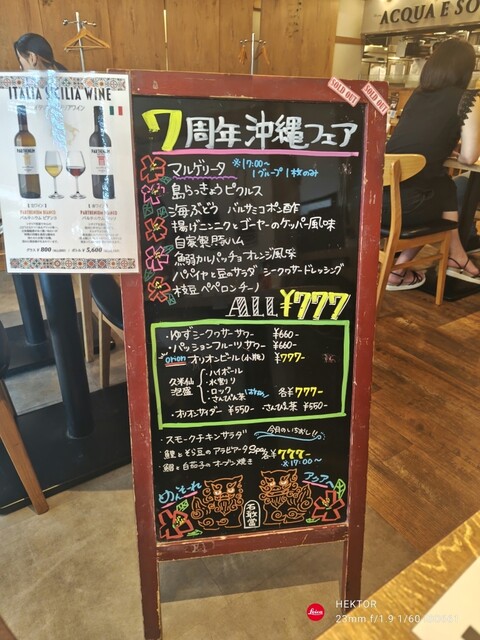 ACQUA E SO
ITALIA SICILIA WINE
SOLD OUT
SOLD OUT
7周年沖縄フェア
マルゲリータ ※17:00〜 1グループ1枚のみ
島らっきょうピクルス
海ぶどう バルサミコポン酢
揚げニンニクとゴーヤーのケッパー風味
自家製豚ハム
鮪カルパッチョオレンジ風味
パパイヤと豆のサラダ シークワサードレッシング
枝豆ペペロンチーノ
ALL ¥777
・ゆずシークワサーサワー ¥660-
・パッションフルーツサワー ¥660-
orion オリオンビール(小瓶) ¥777-
久米仙 泡盛
・ハイボール
・水割り
・ロック
・さんぴん茶 各¥777-
・オリオンサイダー ¥550- ・さんぴん茶 ¥550-
・スモークチキンサラダ 今月のいちおし!!
・鯉とそら豆のアラビアータ 各¥777-
※17:00〜
・鯛と白茄子のオーブン焼き
めんそーれ
アクア
石敢當
Leica
HEKTOR
23mm f/1.9 1/60